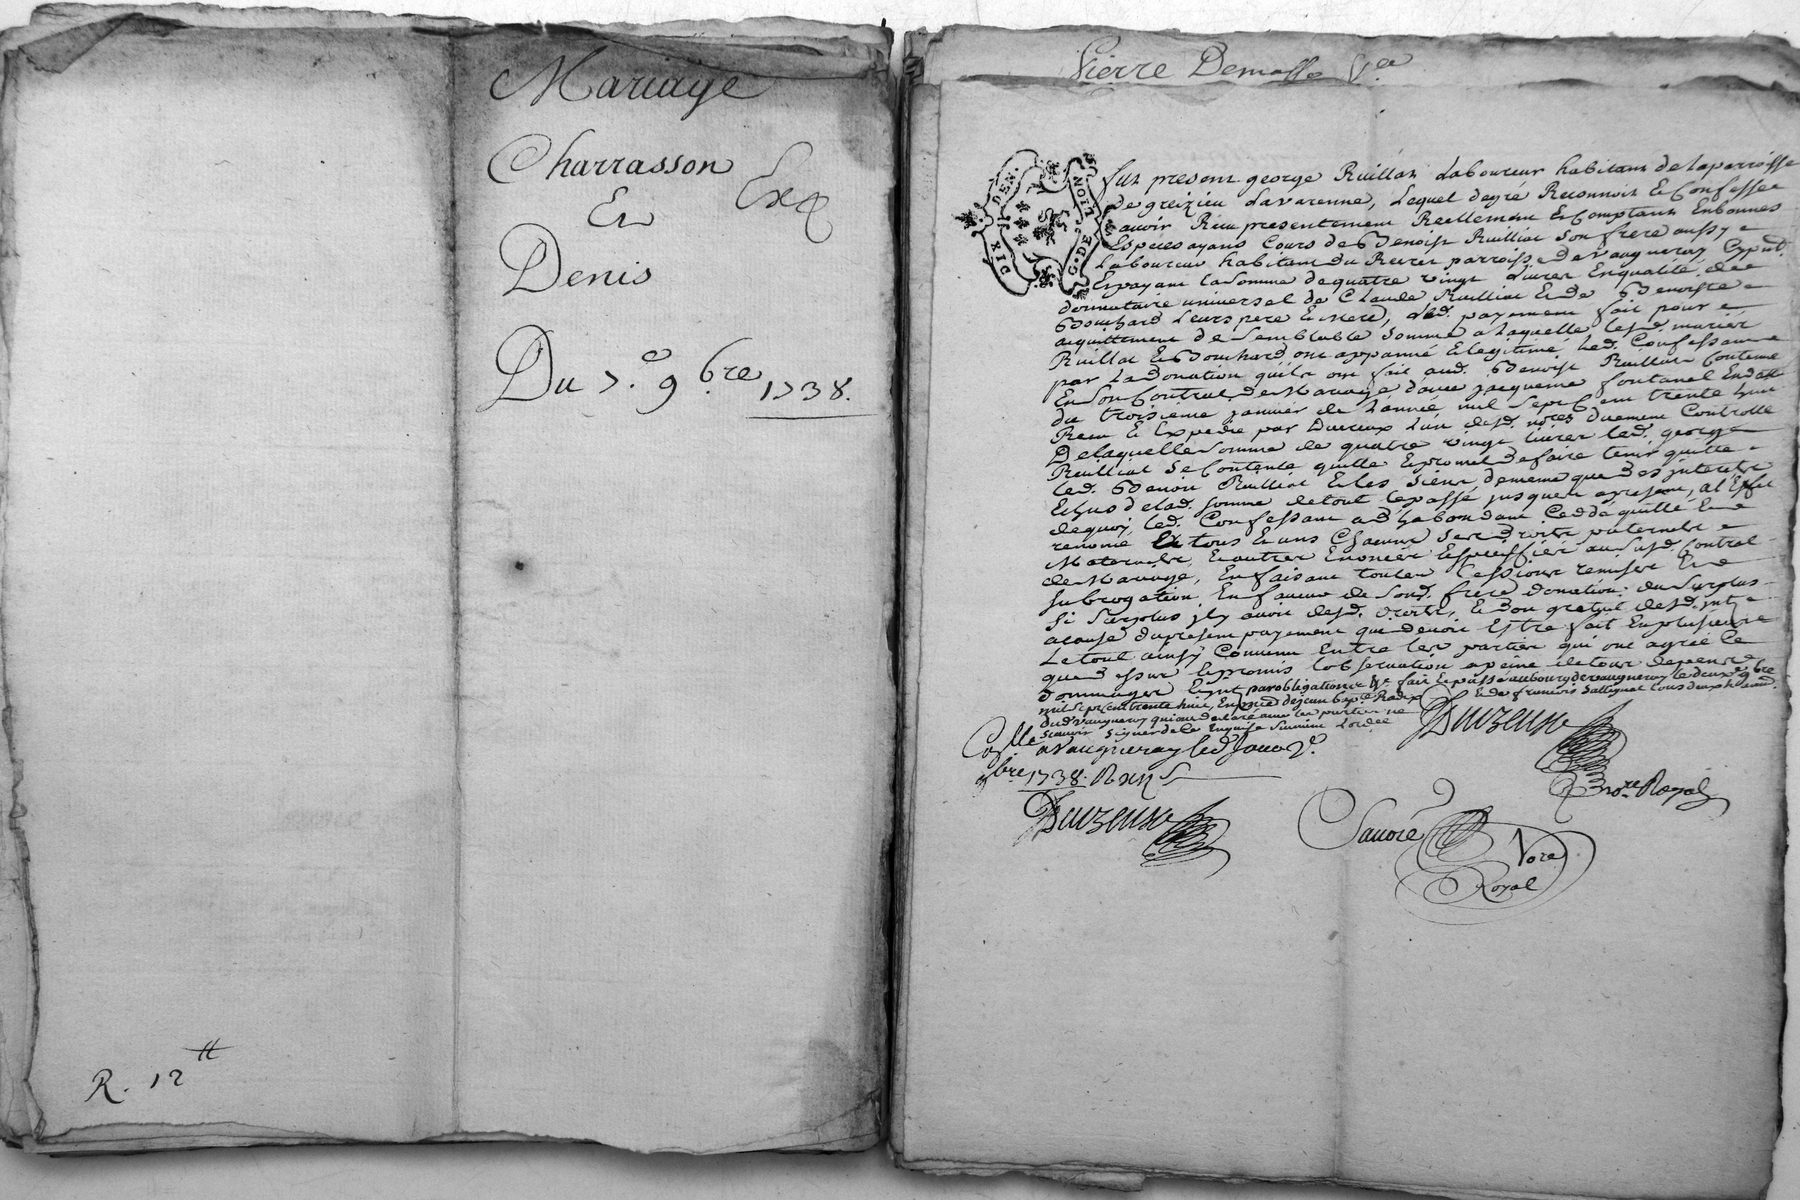 Mariage
Charrasson
Et
Exp
Denis
Du 7.e 9bre 1738.
R. 12 tt
Pierre
DIX DEN.
G. DE LION
fut present george Ruillat Laboureur habitant de la parroisse
de greizieu Lavarenne, Lequel dagré Reconnoit Et Confesse
avoir Receu presentement Reellement Et Comptant En bonnes
Especes ayant Cours de Benoist Ruilliat son frere aussy
Laboureur habitant du parroisse de Vaugneray
Et payant la Somme de quatre vingt Livres En qualité de
donnataire universel de Claude Ruilliat Et de Benoiste
Bouchard Leurs pere Et mere, payement fait pour
acquittement de Semblable Somme a Laquelle Lesd. mariés
Ruillat Et Bouchard ont appanné Et legitimé Led. Confessant
par La Donation quils ont fait aud. Benoist Ruilliat Contenue
En son Contrat de Mariage davec jacqueme fontanel En datte
du troisieme janvier de Lannée mil Sept Cent trente huit
Receu Et Expedié par Duzeux Lun desd. nores Duement Controllé
De laquelle Somme de quatre vingt livres Led. george
Ruilliat Se Contente quitte Et promet De faire tenir quitte
Led. Benoit Ruilliat Et les Siens de meme que Des jnterets
Echus de lad. Somme de tout le passé jusques a present, al Effet
dequoy Led. Confessant a Dhabondant Cedde quitté Et
renoncé a tous Et uns Chacuns Ses Droits paternels
Maternels, Et autres Enoncés Et Speciffiés au Susd. Contrat
de Mariage, En faisant toutes Cessions remises Et
Subrogation En faveur de Sond. frere donation du Surplus
Si Surplus jl y avoit desd. droits, Et Don gratuit desd. jnts
a cause du present payement qui devoit Estre fait En plusieurs
Le tout ainsy Convenu Entre Les parties qui ont agréé Ce
que dessus Et promis Lobservation a peine de tous depens
dommages Et jnts par obligation &c fait Et passé au bourg de vaugneray le deux 9bre
mil Sept cent trente huit, En presence de jean Et de francois tous deux
dud. Vaugneray qui ont declaré avec les parties ne
Scavoir Signer de ce Enquis Suivant Lordce
Duzeux
nore Royal
Collé a Vaugneray led. Jour 2e
9bre 1738. R
Duzeux
Savoié
Nore
Royal